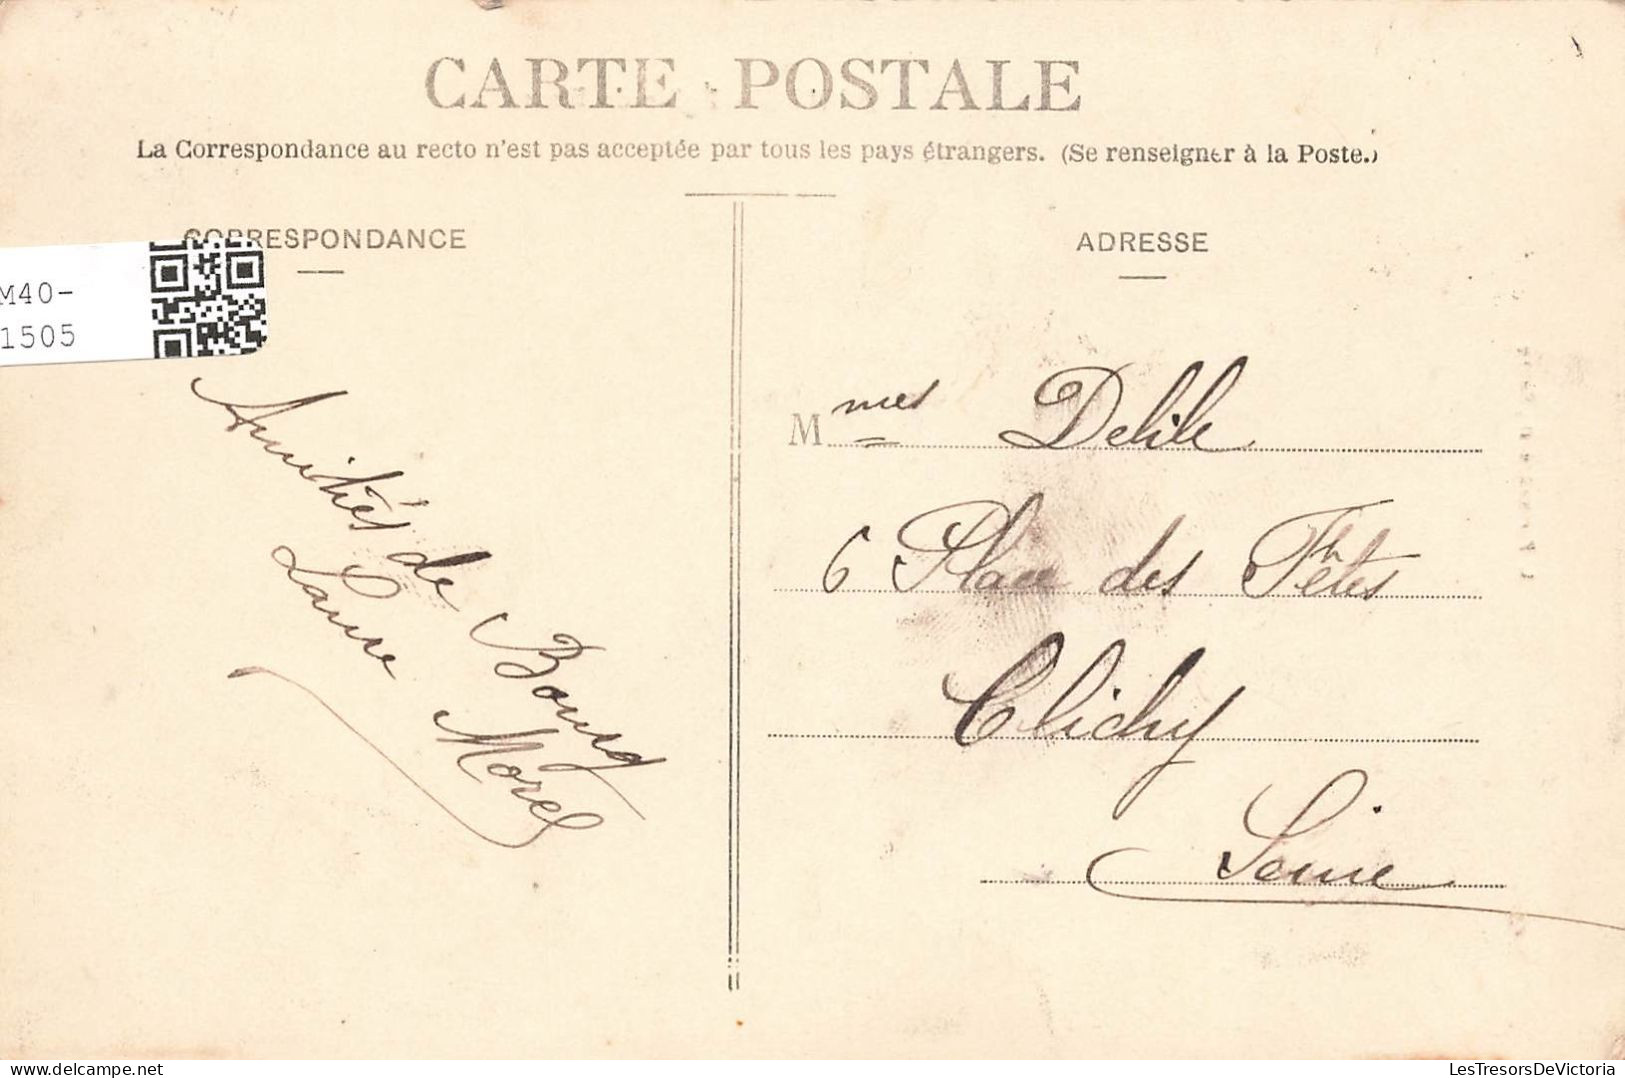 CARTE POSTALE
La Correspondance au recto n'est pas acceptée par tous les pays étrangers. (Se renseigner à la Poste.)
CORRESPONDANCE
M40-
1505
Amitiés de Bourg
Laure Morel
ADRESSE
Mmes Delile
6 Place des Fêtes
Clichy
Seine
LesTresorsDeVictoria